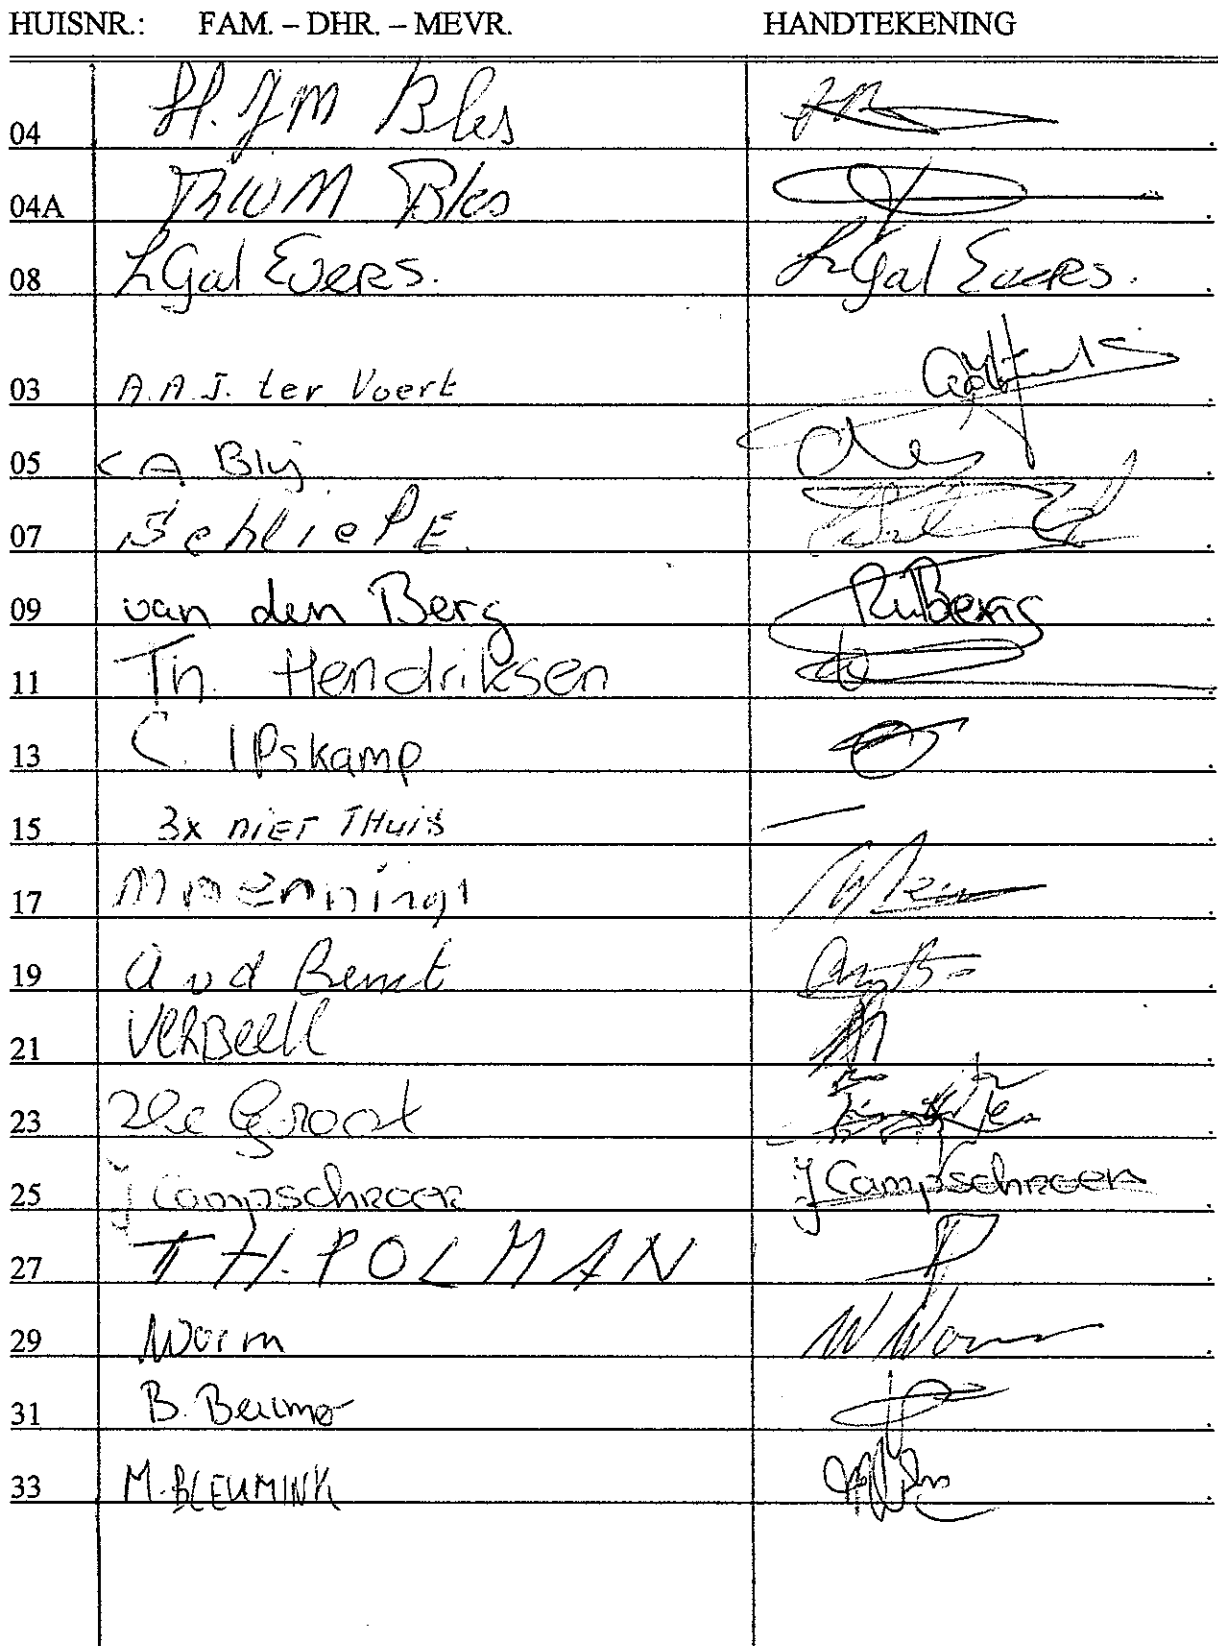 HUISNR.: FAM. – DHR. – MEVR. HANDTEKENING
04 H. J M Bles
04A BWM Bles
08 L Gal Evers. L Gal Evers.
03 A.A.J. ter Voert
05 C A Blij
07 SchliePE.
09 van den Berg
11 Th. Hendriksen
13 C. IPskamp
15 3x niet THuis —
17
19 A v d Bemt
21 VerBeek
23 De Groot
25 J Campschroer J Campschroer
27 TH. POLMAN
29 Worm W Worm
31 B. Beumer
33 M. BLEUMINK